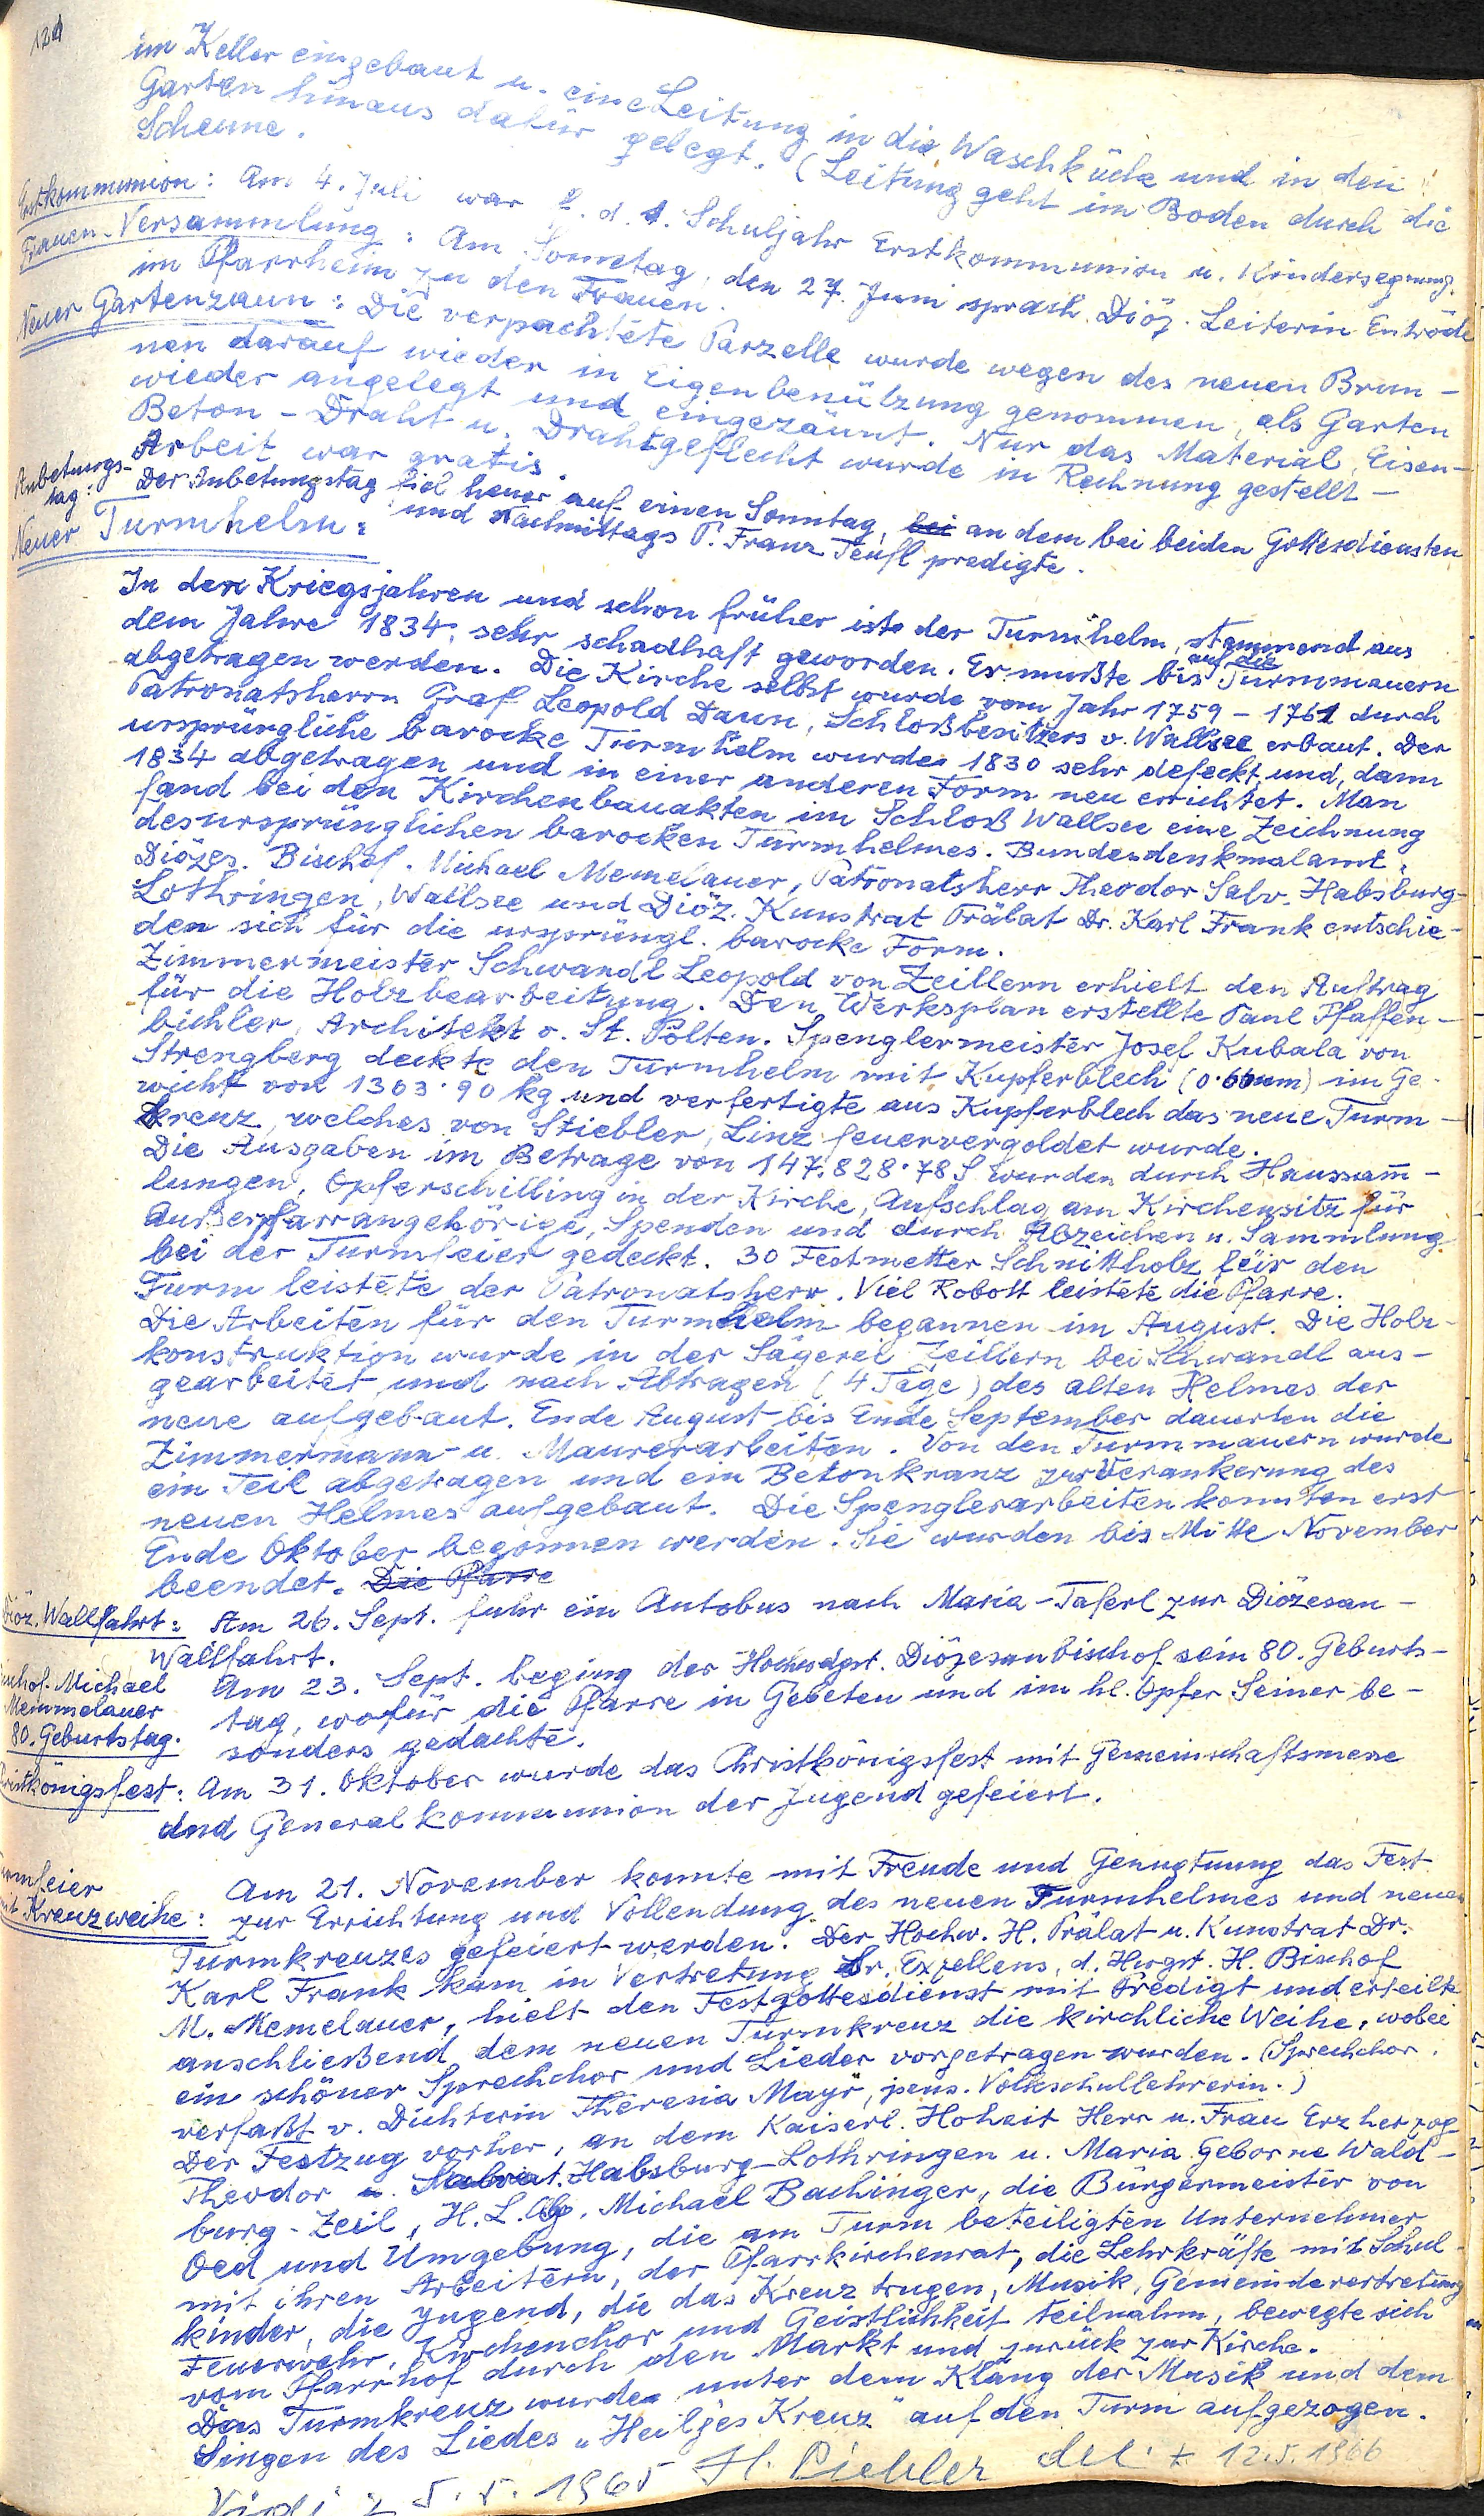 121
im Keller eingebaut u. eine Leitung in die Waschküche und in den
Garten hinaus dafür gelegt. (Leitung geht im Boden durch die
Scheune.
Erstkommunion: Am 4. Juli war f. d. 1. Schuljahr Erstkommunion u. Kindersegnung.
Frauen-Versammlung: Am Sonntag, den 27. Juni sprach Diöz. Leiterin
im Pfarrheim zu den Frauen.
Neuer Gartenzaun: Die verpachtete Parzelle wurde wegen des neuen Brun-
nen darauf wieder in Eigenbenützung genommen, als Garten
wieder angelegt und eingezäunt. Nur das Material, Eisen-
Beton-Draht u. Drahtgeflecht wurde in Rechnung gestellt -
Arbeit war gratis.
Anbetungs-
tag: Der Anbetungstag fiel heuer auf einen Sonntag, bei an dem bei beiden Gottesdiensten
und Nachmittags P. Franz Teufl predigte.
Neuer Turmhelm:
In den Kriegsjahren und schon früher ist der Turmhelm, stammend aus
dem Jahre 1834, sehr schadhaft geworden. Er mußte bis auf die Turmmauern
abgetragen werden. Die Kirche selbst wurde vom Jahr 1759 - 1761 durch
Patronatsherrn Graf Leopold Daun, Schloßbesitzers v. Wallsee erbaut. Der
ursprüngliche barocke Turmhelm wurde 1830 sehr defeckt und, dann
1834 abgetragen und in einer anderen Form neu errichtet. Man
fand bei den Kirchenbauakten im Schloß Wallsee eine Zeichnung
des ursprünglichen barocken Turmhelmes. Bundesdenkmalamt,
Diözes. Bischof. Michael Memelauer, Patronatsherr Theodor Salv. Habsburg-
Lothringen, Wallsee und Diöz. Kunstrat Prälat Dr. Karl Frank entschie-
den sich für die ursprüngl. barocke Form.
Zimmermeister Schwandl Leopold von Zeillern erhielt den Auftrag
für die Holzbearbeitung. Den Werksplan erstellte Paul Pfaffen-
bichler, Architekt v. St. Pölten. Spenglermeister Josef Kubala von
Strengberg deckte den Turmhelm mit Kupferblech (0·60mm) im Ge-
wicht von 1303·90 kg und verfertigte aus Kupferblech das neue Turm-
kreuz, welches von Stiebler, Linz feuervergoldet wurde.
Die Ausgaben im Betrage von 147.828·78 S wurden durch Haussam̄-
lungen, Opferschilling in der Kirche, Aufschlag am Kirchensitz für
Außerpfarrangehörige, Spenden und durch Abzeichen u. Sammlung
bei der Turmfeier gedeckt. 30 Festmetter Schnittholz für den
Turm leistete der Patronatsherr. Viel Robott leistete die Pfarre.
Die Arbeiten für den Turmhelm begannen im August. Die Holz-
konstruktion wurde in der Sägerei Zeillern bei Schwandl aus-
gearbeitet und nach Abtragen (4 Tage) des alten Helmes der
neue aufgebaut. Ende August bis Ende September dauerten die
Zimmermann- u. Maurerarbeiten. Von den Turmmauern wurde
ein Teil abgetragen und ein Betonkranz zur Verankerung des
neuen Helmes aufgebaut. Die Spenglerarbeiten konnten erst
Ende Oktober begonnen werden. Sie wurden bis Mitte November
beendet. Die Pfarre
Diöz. Wallfahrt: Am 26. Sept. fuhr ein Autobus nach Maria-Taferl zur Diözesan-
Wallfahrt.
Bischof Michael
Memmelauer
80. Geburtstag. Am 23. Sept. beging der Hochwdgst. Diözesanbischof sein 80. Geburts-
tag, wofür die Pfarre in Gebeten und im hl. Opfer Seiner be-
sonders gedachte.
Christkönigsfest: Am 31. Oktober wurde das Christkönigsfest mit Gemeinschaftsmesse
und Generalkommunion der Jugend gefeiert.
Turmfeier
mit Kreuzweihe: Am 21. November konnte mit Freude und Genugtuung das Fest
zur Errichtung und Vollendung des neuen Turmhelmes und neuen
Turmkreuzes gefeiert werden. Der Hochw. H. Prälat u. Kunstrat Dr.
Karl Frank kam in Vertretung Sr. Exzellens, d. Hwgst. H. Bischof
M. Memelauer, hielt den Festgottesdienst mit Predigt und erteilte
anschließend dem neuen Turmkreuz die kirchliche Weihe, wobei
ein schöner Sprechchor und Lieder vorgetragen wurden. (Sprechchor
verfaßt v. Dichterin Theresia Mayr, pens. Volksschullehrerin.)
Der Festzug vorher, an dem Kaiserl. Hoheit Herr u. Frau Erzherzog
Theodor Habsburg-Lothringen u. Maria geborne Wald-
burg-Zeil, H. L. Abg. Michael Bachinger, die Bürgermeister von
Oed und Umgebung, die am Turm beteiligten Unternehmer
mit ihren Arbeitern, der Pfarrkirchenrat, die Lehrkräfte mit Schul-
kinder, die Jugend, die das Kreuz trugen, Musik, Gemeindevertretung
Feuerwehr, Kirchenchor und Geistlichkeit teilnahm, bewegte sich
vom Pfarrhof durch den Markt und zurück zur Kirche.
Das Turmkreuz wurde unter dem Klang der Musik und dem
Singen des Liedes „Heilges Kreuz" auf den Turm aufgezogen.
Vidi 5.5.1965 12.5.1966